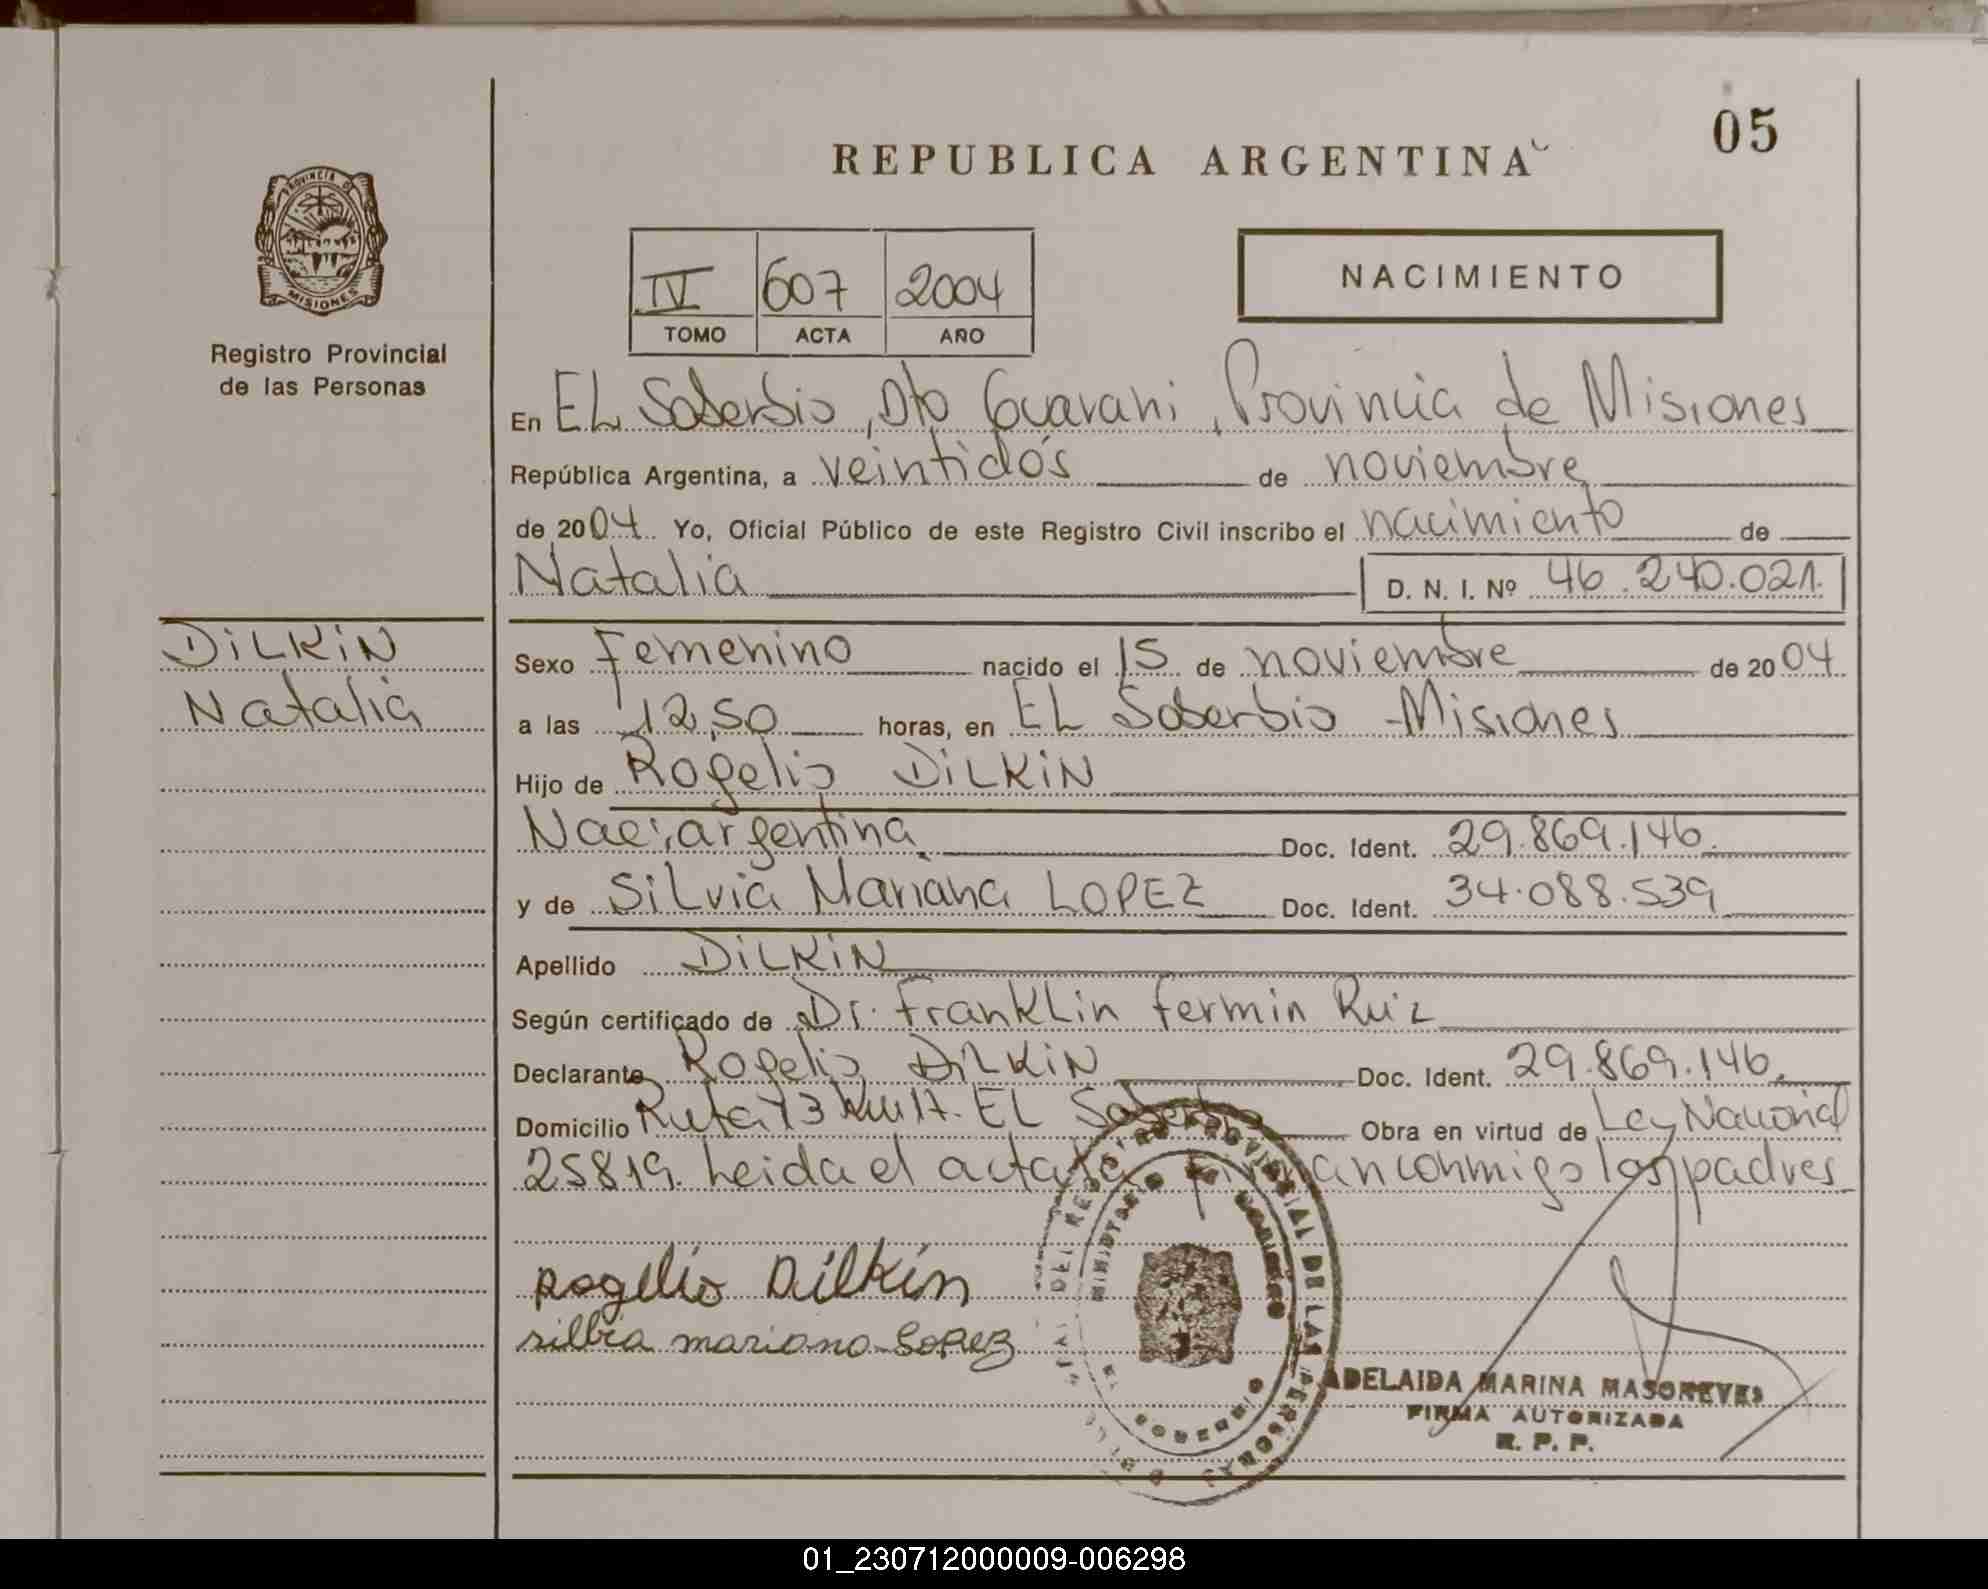 05
REPUBLICA ARGENTINA
PROVINCIA DE
MISIONES
Registro Provincial
de las Personas
IV 607 2004
TOMO ACTA AÑO
NACIMIENTO
En EL Soberbio, Dto Guarani, Provincia de Misiones
República Argentina, a veintidós de noviembre
de 2004 Yo, Oficial Público de este Registro Civil inscribo el nacimiento de
Natalia D. N. I. Nº 46.240.021.
DILKIN
Natalia
Sexo Femenino nacido el 15 de noviembre de 2004
a las 12,50 horas, en EL Soberbio - Misiones
Hijo de Rogelio DILKIN
Nac: argentina Doc. Ident. 29.869.146.
y de Silvia Mariana LOPEZ Doc. Ident. 34.088.539
Apellido DILKIN
Según certificado de Dr. Franklin Fermin Ruiz
Declarante Rogelio DILKIN Doc. Ident. 29.869.146.
Domicilio Ruta 13 Km 17. EL Soberbio Obra en virtud de Ley Nacional
25819. Leida el acta conmigo los padres
Rogelio Dilkin
silbia mariana Lopez
PROVINCIAL DE LAS PERSONAS
MINISTERIO DE GOBIERNO
ADELAIDA MARINA MASGREVES
FIRMA AUTORIZADA
R. P. P.
01_230712000009-006298